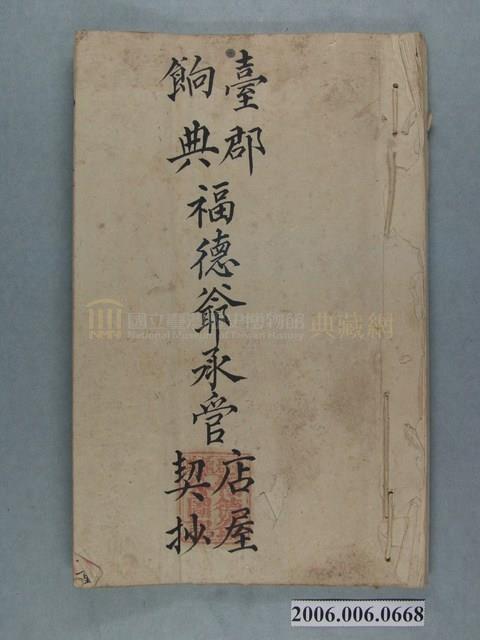 臺郡
餉典
福德爺承管
店屋
契抄
國立臺灣歷史博物館 典藏網
National Museum of Taiwan History
2006.006.0668